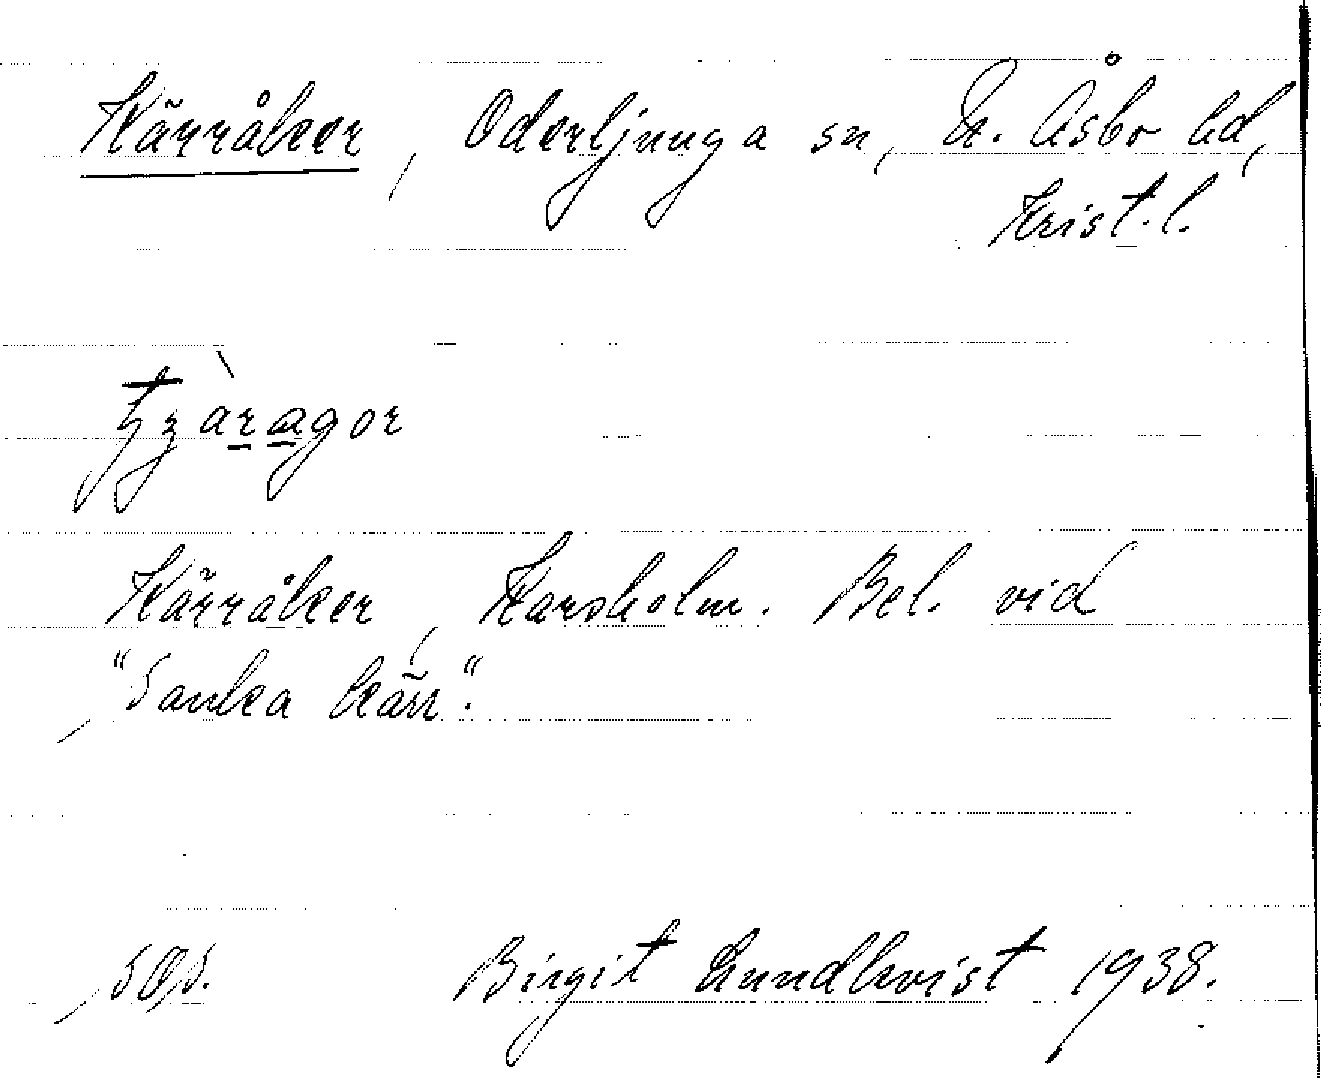 Kärråker, Oderljunga sn, N. Åsbo hd,
Krist. l.
Kärråker, Karsholm. Bel. vid
"Sanka kärr".
Birgit Lundkvist 1938.